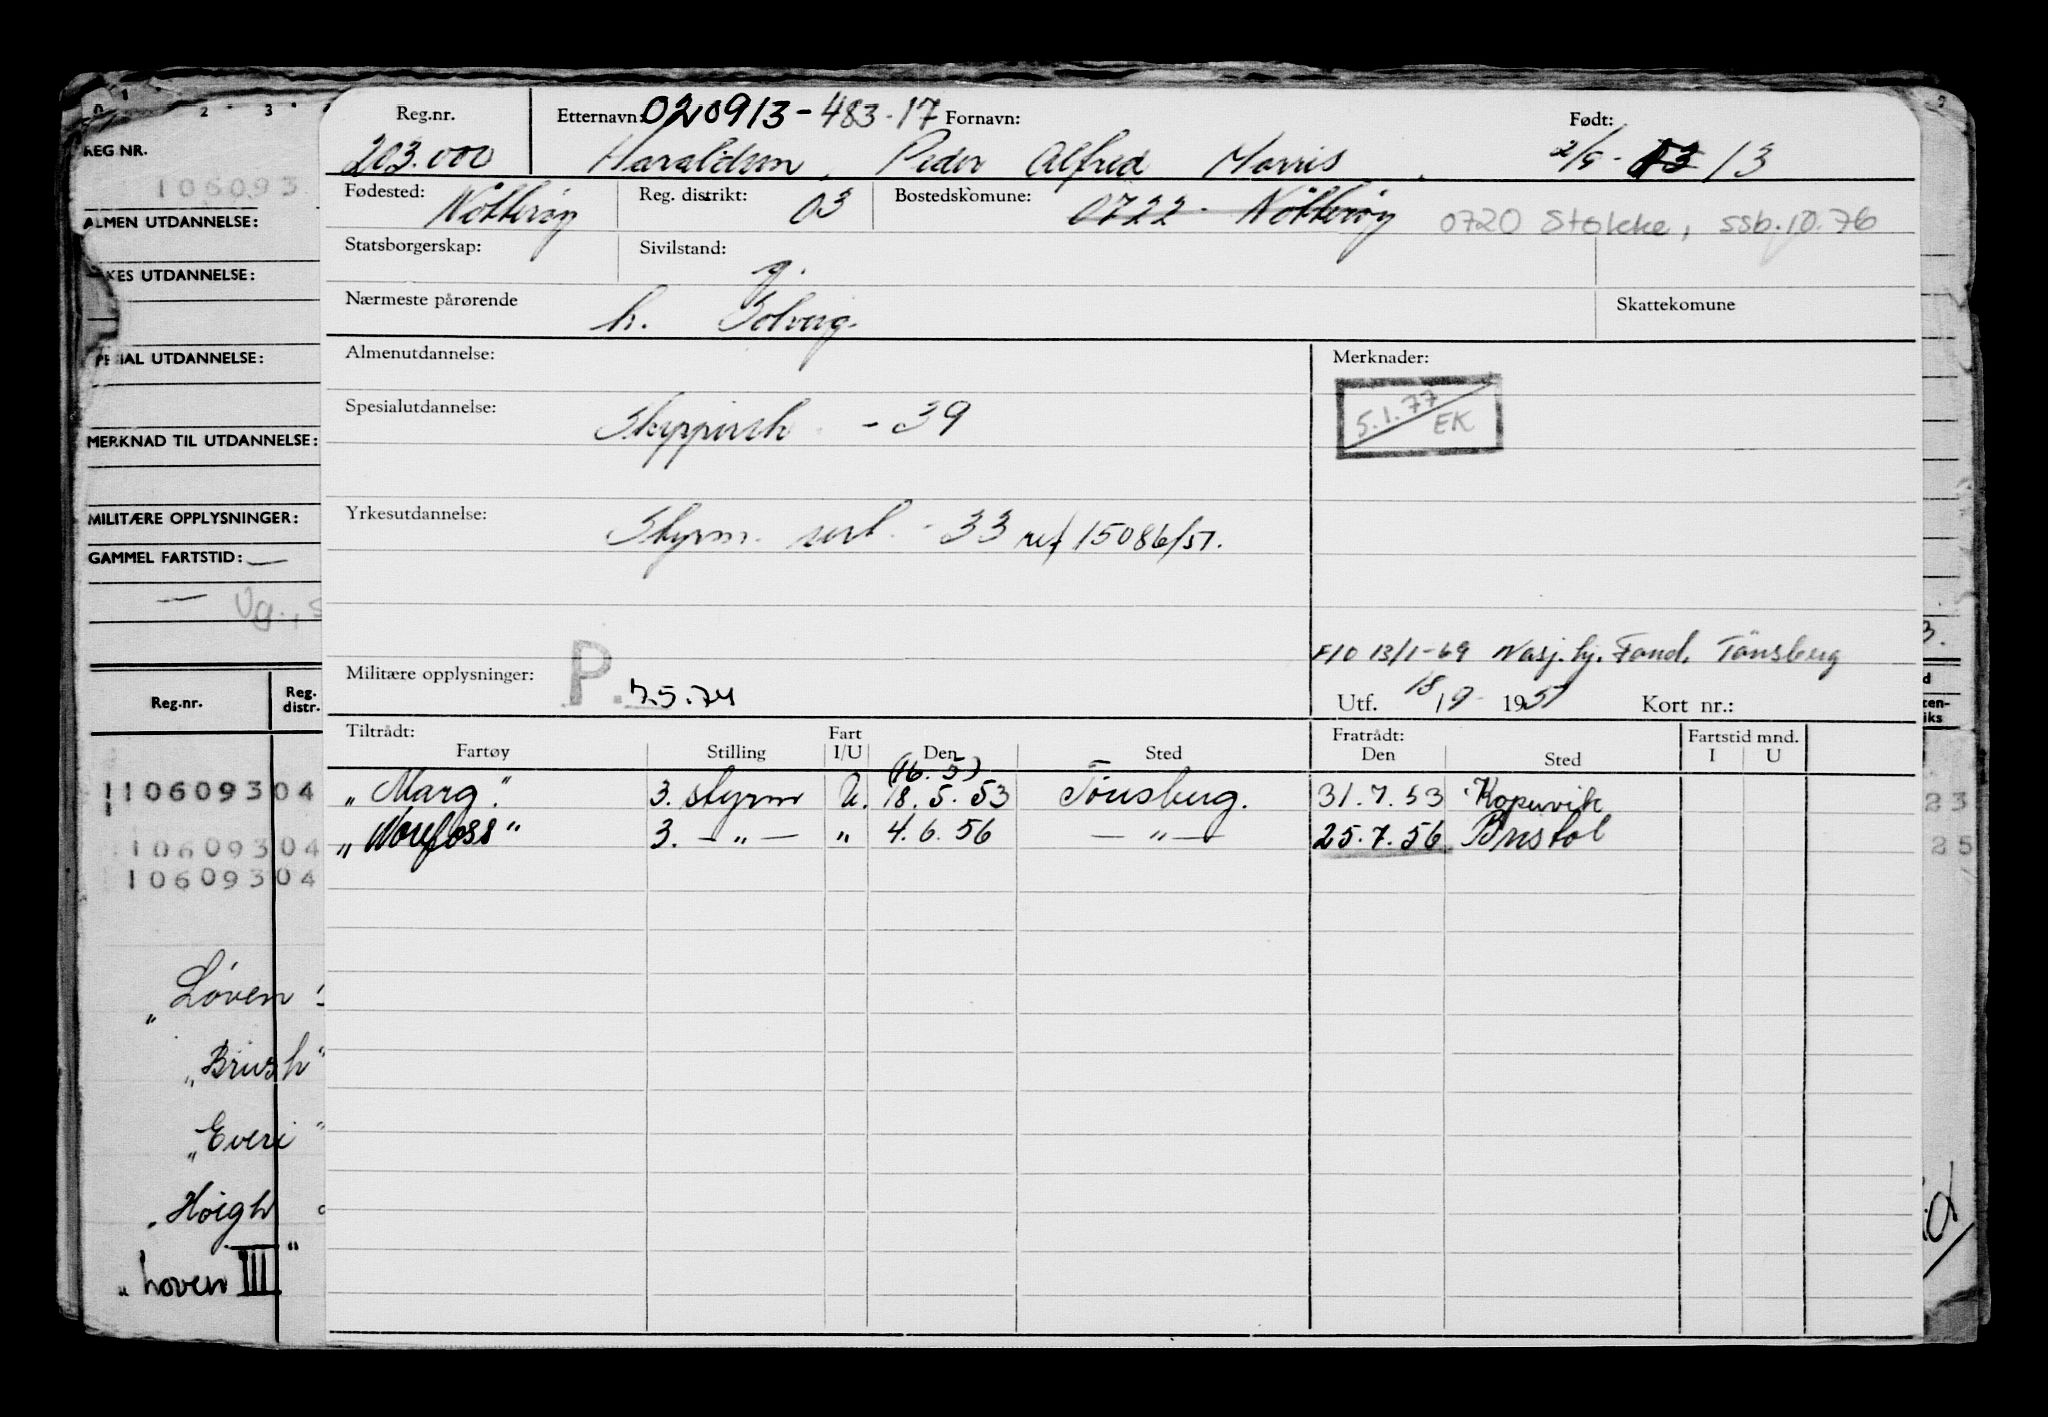 0 1 2 3
REG NR.
106093
ALMEN UTDANNELSE:
KES UTDANNELSE:
IAL UTDANNELSE:
MERKNAD TIL UTDANNELSE:
MILITÆRE OPPLYSNINGER:
GAMMEL FARTSTID: —
— Ug., s
Reg.nr. Reg. distr.
110609304
10609304
10609304
"Løven
"Brush"
"Everi"
"Høigh
"hoven III"
Reg.nr. Etternavn: 020913-483-17 Fornavn: Født:
203.000 Haraldsen, Peder Alfred Morris 2/9-13 13
Fødested: Nøtterøy Reg. distrikt: 03 Bostedskomune: 0722 - Nøtterøy 0720 Stokke, ssb.10.76
Statsborgerskap: Sivilstand: g.
Nærmeste pårørende h. Solveig. Skattekomune
Almenutdannelse: Merknader:
5.1.77 EK
Spesialutdannelse: Skippersk - 39
Yrkesutdannelse: Styrm. sert. - 33 ref 15086/51.
F10 13/1-69 Nasj.hj. Fond. Tönsberg
Militære opplysninger: P. 7.5.74
Utf. 18/9 - 1951 Kort nr.:
Tiltrådt: Fart Fratrådt: Fartstid mnd.
Fartøy Stilling I/U Den Sted Den Sted I U
(16.5)
"Marg." 3. styrm U. 18.5.53 Tönsberg. 31.7.53 Kopervik
"Norefoss" 3. —"— " 4.6.56 —"— 25.7.56 Bristol
23
25